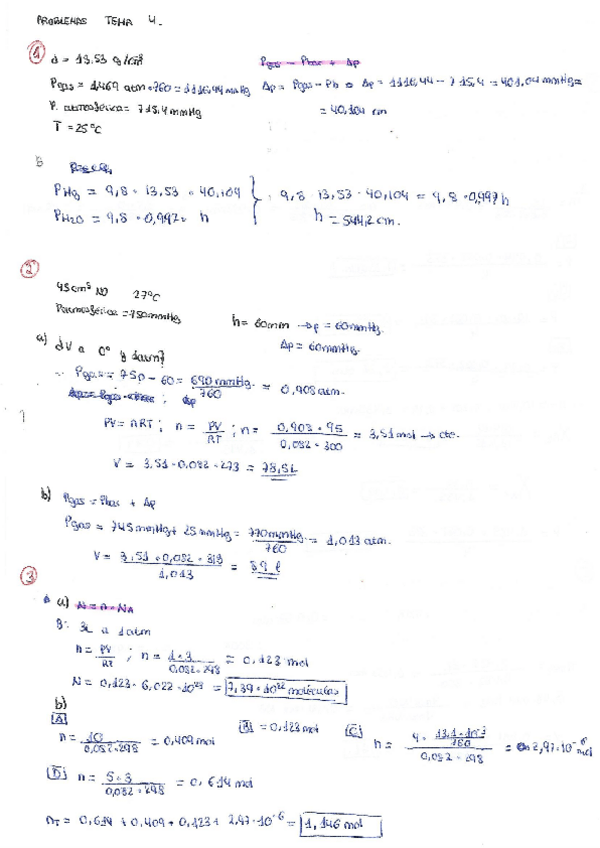 PROBLEMAS TEMA 4.
① d = 13,53 g/cm³
Pgas = Pbar + Δp
Pgas = 1,469 atm · 760 = 1116,44 mmHg
Δp = Pgas - Pb = Δp = 1116,44 - 715,4 = 401,04 mmHg =
P. atmosférica = 715,4 mmHg
= 40,104 cm
T = 25°C
PHg = 9,8 · 13,53 · 40,104
PH2O = 9,8 · 0,997 · h
9,8 · 13,53 · 40,104 = 9,8 · 0,997 h
h = 544,2 cm.
②
95 cm³ NO 27°C
Patmosférica = 750 mmHg
h = 60 mm → Δp = 60 mmHg.
Δp = 60 mmHg.
a) ¿V a 0° y 1 atm?
Pgas = 750 - 60 = 690 mmHg / 760 = 0,908 atm.
PV = nRT ; n = PV/RT ; n = 0,903 · 95 / 0,082 · 300 = 3,51 mol → cte.
V = 3,51 · 0,082 · 273 = 78,5 L
b) Pgas = Pbar + Δp
Pgas = 745 mmHg + 25 mmHg = 770 mmHg / 760 = 1,013 atm.
V = 3,51 · 0,082 · 313 / 1,013 = 89 l
③
a) N = n · NA
B: 3L a 1 atm
n = PV/RT ; n = 1 · 3 / 0,082 · 298 = 0,123 mol
N = 0,123 · 6,022 · 10²³ = 7,39 · 10²² moléculas
b)
[A]
n = 10 / 0,082 · 298 = 0,409 mol
[B] = 0,123 mol
[C] n = / 0,082 · 298 = 2,97 · 10⁻⁶ mol
[D] n = 5 · 3 / 0,082 · 298 = 0,614 mol
nT = 0,614 + 0,409 + 0,123 + 2,97 · 10⁻⁶ = 1,146 mol